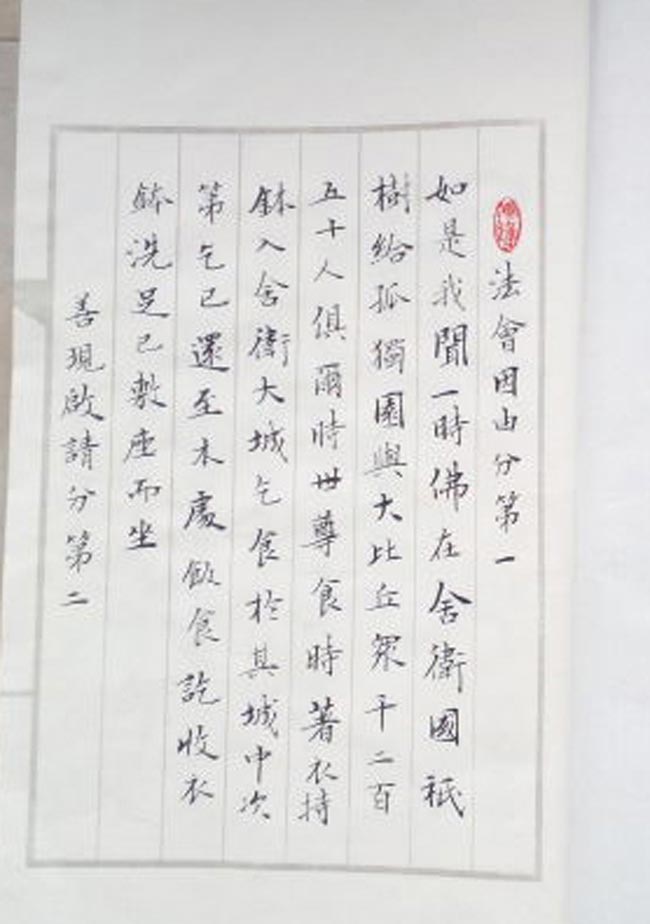 法會因由分第一
如是我聞一時佛在舍衛國祇
樹給孤獨園與大比丘眾千二百
五十人俱爾時世尊食時著衣持
鉢入舍衛大城乞食於其城中次
第乞已還至本處飯食訖收衣
鉢洗足已敷座而坐
善現啟請分第二